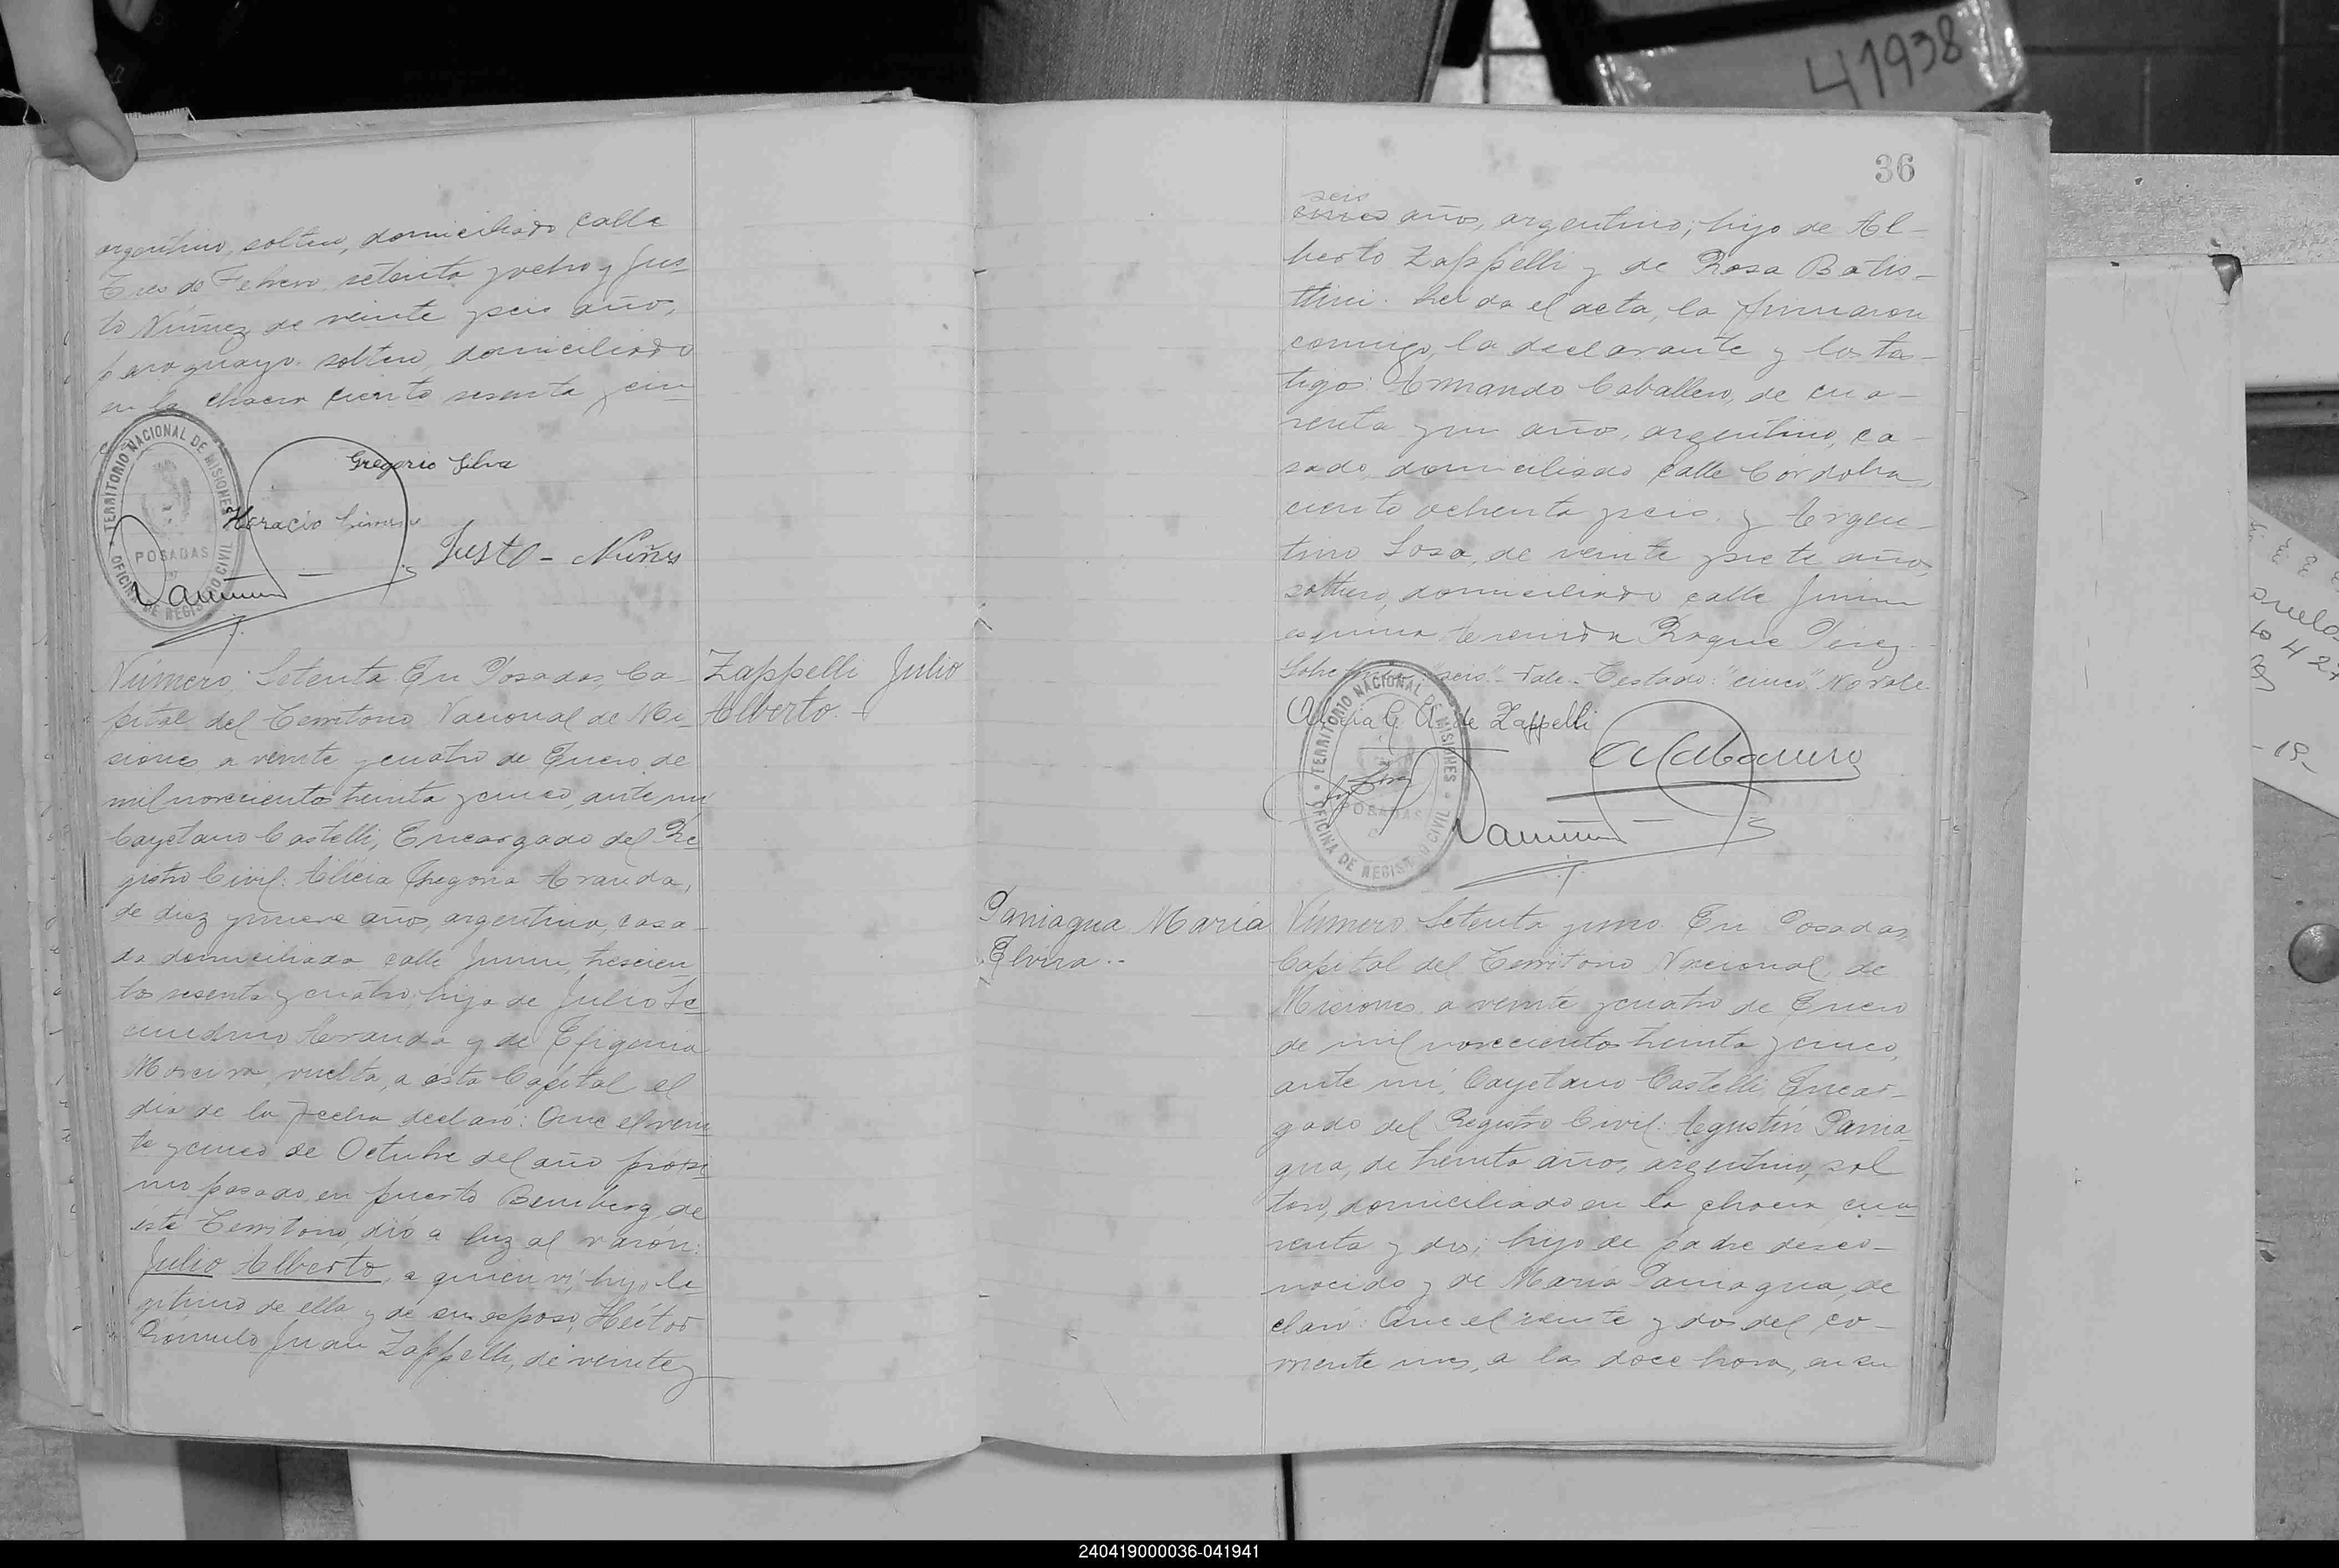 argentino, soltero, domiciliado calle
Tres de Febrero setenta y ocho y Jus-
to Núñez de veinte y seis años,
paraguayo, soltero, domiciliado
en la chacra ciento sesenta y cin-
Gregorio Silva
Horacio
Justo - Nuñes
TERRITORIO NACIONAL DE MISIONES
POSADAS
OFICINA DE REGISTRO CIVIL
Número: Setenta. En Posadas, Ca-
pital del Territorio Nacional de Mi-
siones, a veinte y cuatro de Enero de
mil novecientos treinta y cinco, ante mi
Cayetano Castelli, Encargado del Re-
gistro Civil: Alicia Gregoria Aranda,
de diez y nueve años, argentina, casa-
da domiciliada calle Junin, trescien
tos sesenta y cuatro; hija de Julio
Aranda y de Efigenia
Moreira, vuelta, a ésta Capital el
día de la fecha declaró: Que el vein-
te y cinco de Octubre del año próxi-
mo pasado, en puerto Bemberg, de
éste Territorio, dió a luz al varón:
Julio Alberto, a quien ví, hijo le
gitimo de ella y de su esposo, Héctor
Rómulo Juan Zappelli, de veinte y
Zappelli Julio
Alberto.-
36
seis
cinco años, argentino; hijo de Al-
berto Zappelli y de Rosa Batis-
ttini. Leida el acta, la firmaron
conmigo, la declarante y los tes-
tigos: Armando Caballero, de cua-
renta y un año, argentino, ca-
sado, domiciliado calle Córdoba,
ciento ochenta y seis, y Argen-
tino Sosa, de veinte y siete años,
soltero, domiciliado calle Junin
esquina Avenida Roque Pérez.-
"seis" - Vale - Testado: "cinco" No vale
Alicia G. A. de Zappelli
TERRITORIO NACIONAL DE MISIONES
POSADAS
OFICINA DE REGISTRO CIVIL
Paniagua María
Elvira.-
Número Setenta y uno. En Posadas,
Capital del Territorio Nacional, de
Misiones, a veinte y cuatro de Enero
de mil novecientos treinta y cinco,
ante mí, Cayetano Castelli, Encar-
gado del Registro Civil: Agustín Pania-
gua, de treinta años, argentino, sol
tero, domiciliado en la chacra cua-
renta y dos; hijo de padre desco-
nocido y de María Paniagua, de
claró: Que el veinte y dos del co-
rriente mes, a las doce horas, en su
41938
240419000036-041941